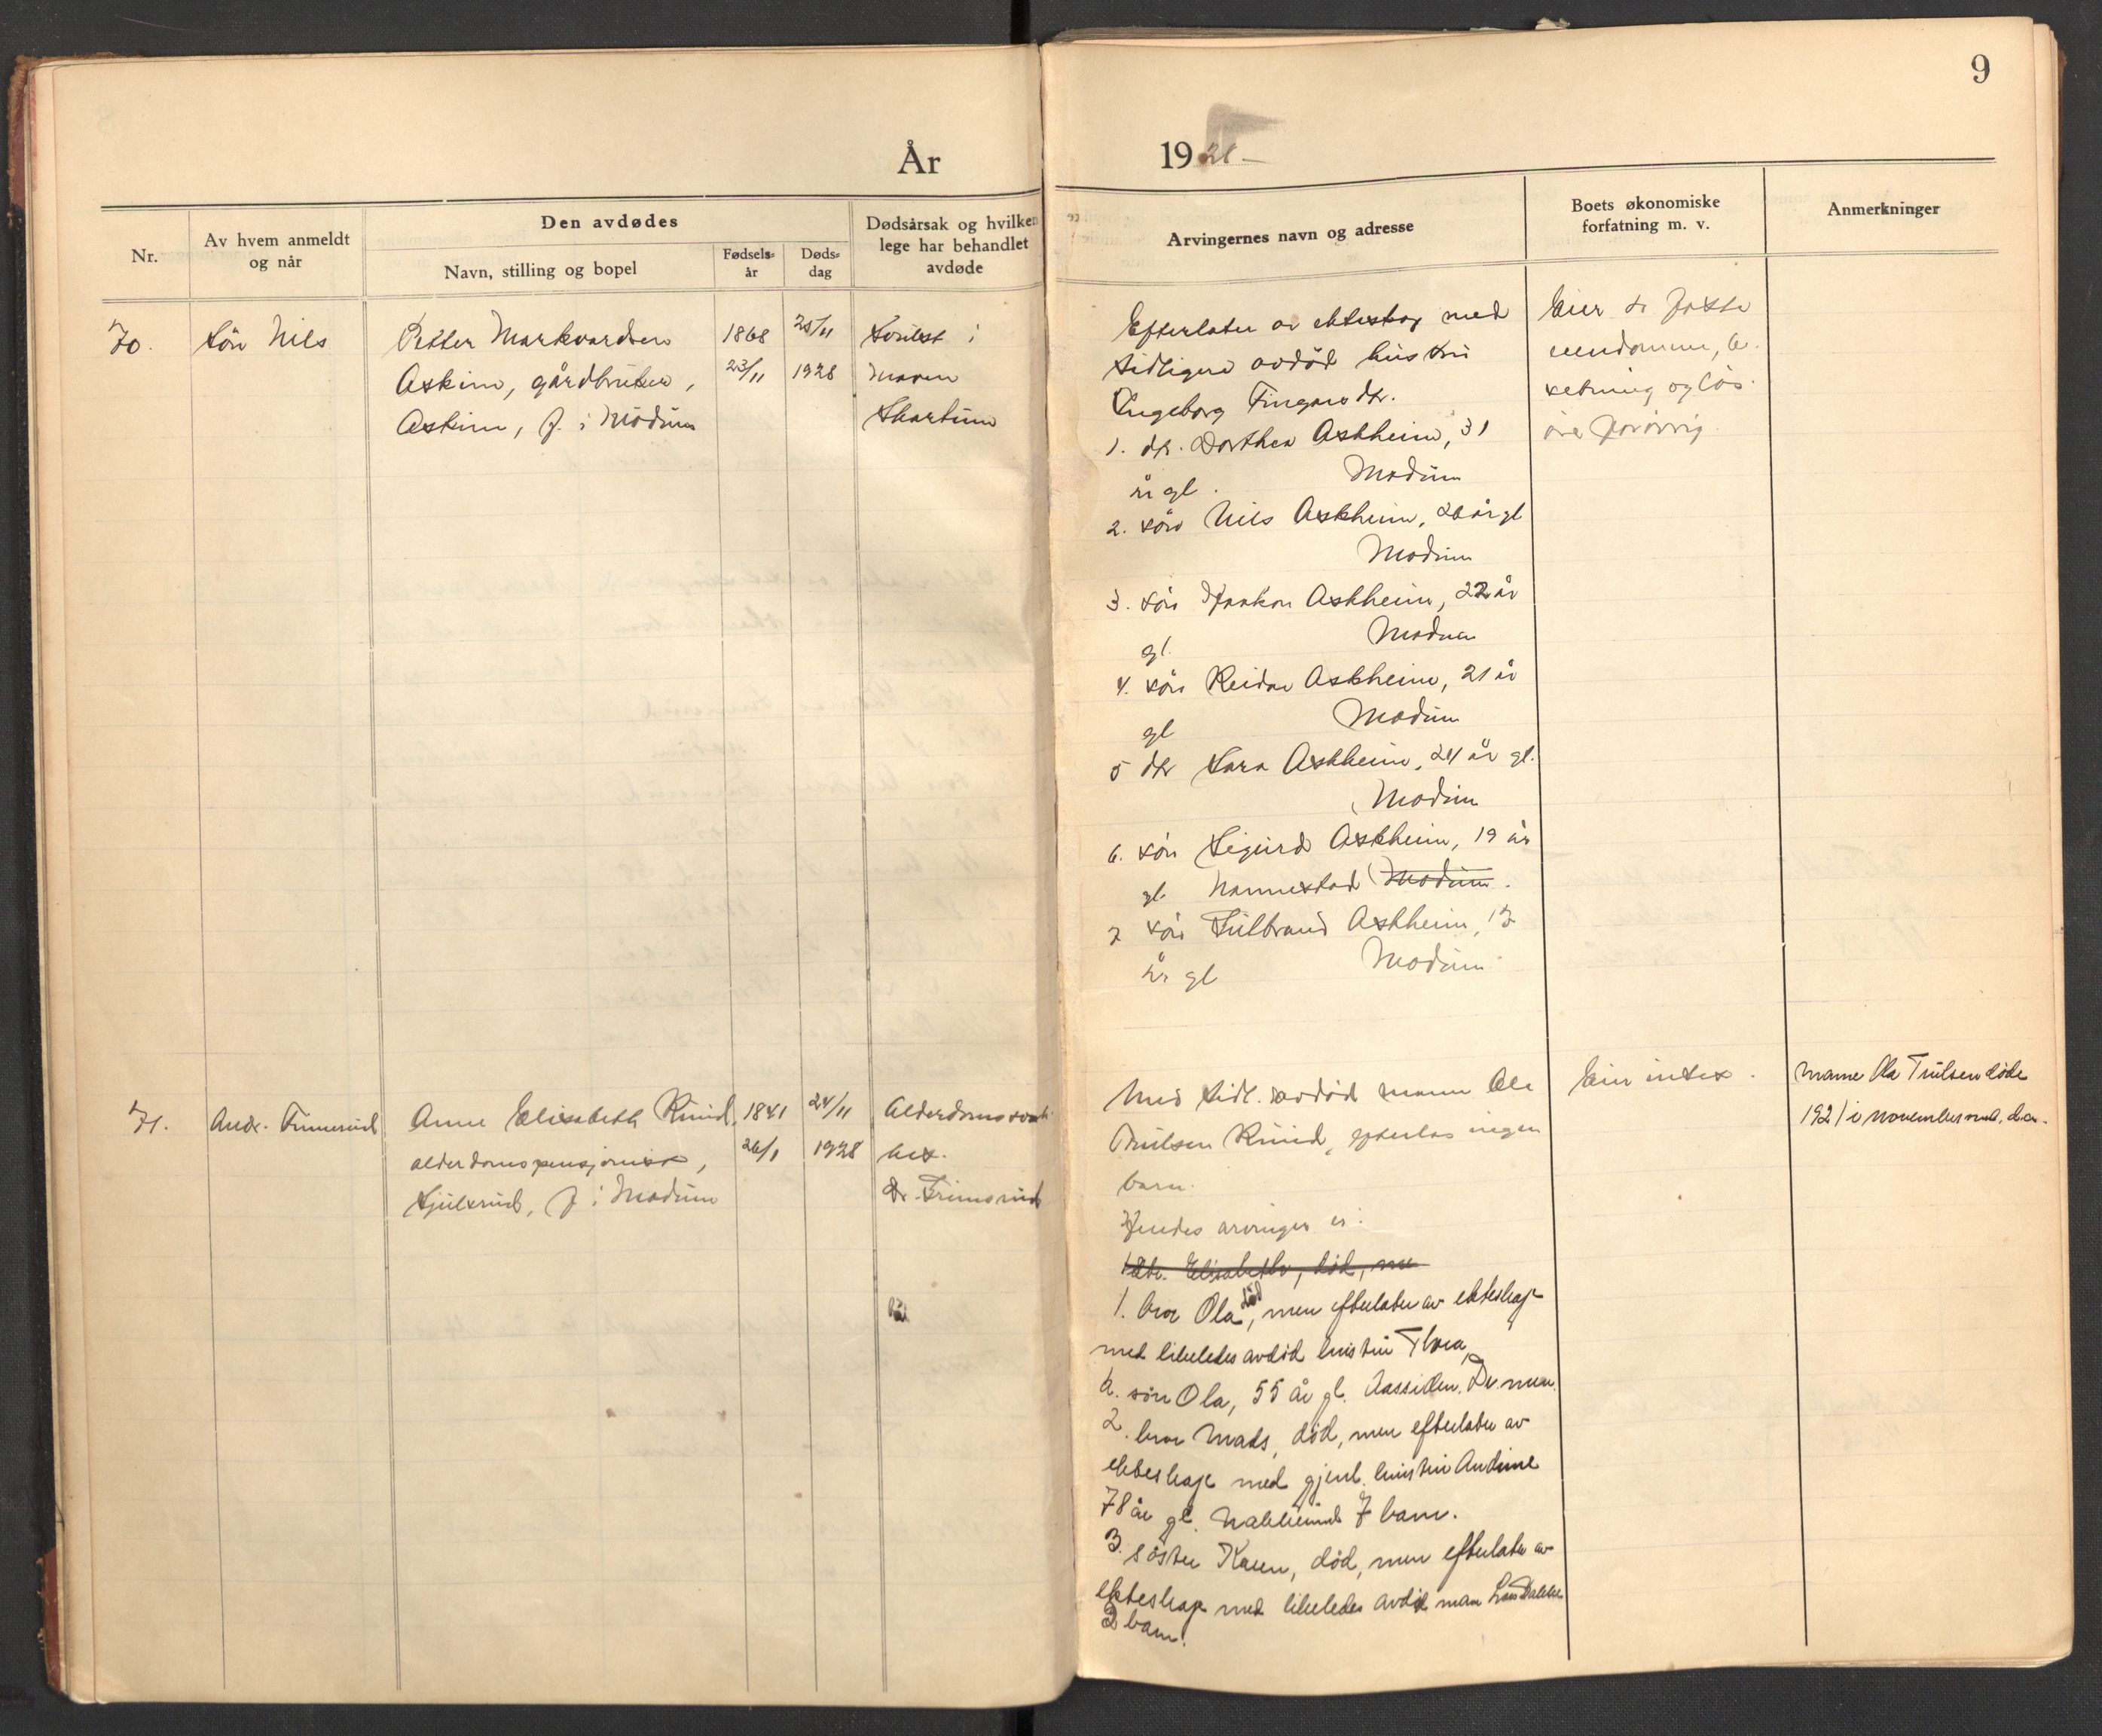 9
År 1928
Nr.
Av hvem anmeldt
og når
Den avdødes
Navn, stilling og bopel
Fødsels-
år
Døds-
dag
Dødsårsak og hvilken
lege har behandlet
avdøde
Arvingernes navn og adresse
Boets økonomiske
forfatning m. v.
Anmerkninger
70.
sön Nils
Petter Markvardsen
Askim, gårdbruker,
Askim, f. i Modum
1868
23/11
25/11
1928
i
maven
Skartum
Efterlater av ekteskap med
tidligere avdöd hustru
Ingeborg Fingarsdtr.
1. dtr. Dorthea Askheim, 31
år gl. Modum
2. sön Nils Askheim, 26 år gl
Modum
3. sön Haakon Askheim, 22 år
gl. Modum
4. sön Reidar Askheim, 21 år
gl Modum
5 dtr Sara Askheim, 24 år gl.
Modum
6. sön Sigurd Askheim, 19 år
gl Nannestad Modum.
7 sön Gulbrand Askheim, 17
år gl Modum
Eier de faste
eiendomme, be-
setning og løs-
øre forøvrig.
71.
Andr. Finnerud
Anne Elisabeth Ruud,
alderdomspensjonist,
Gjulsrud, f. i Modum
1841
26/1
24/11
1928
Alderdomssvak-
het.
Dr. Frimsrud
Med tidl. avdöd mann Ole
Trulsen Ruud, efterlos ingen
barn.
Hendes arvinger er:
1 dtr. Elisabeth, död, men
1. bror Ola död, men efterlater av ekteskap
med likeledes avdöd hustru Thora
a. sön Ola, 55 år gl. Aassiden. Drammen.
2. bror Mads, död, men efterlater av
ekteskap med gjenl. hustru Andrine
78 år gl. Nakkerud 7 barn.
3. söster Karen, död, men efterlater av
ekteskap med likeledes avdöd man Lars
2 barn.
Eier intet.
Mannen Ola Trulsen döde
1921 i november md. d.a.